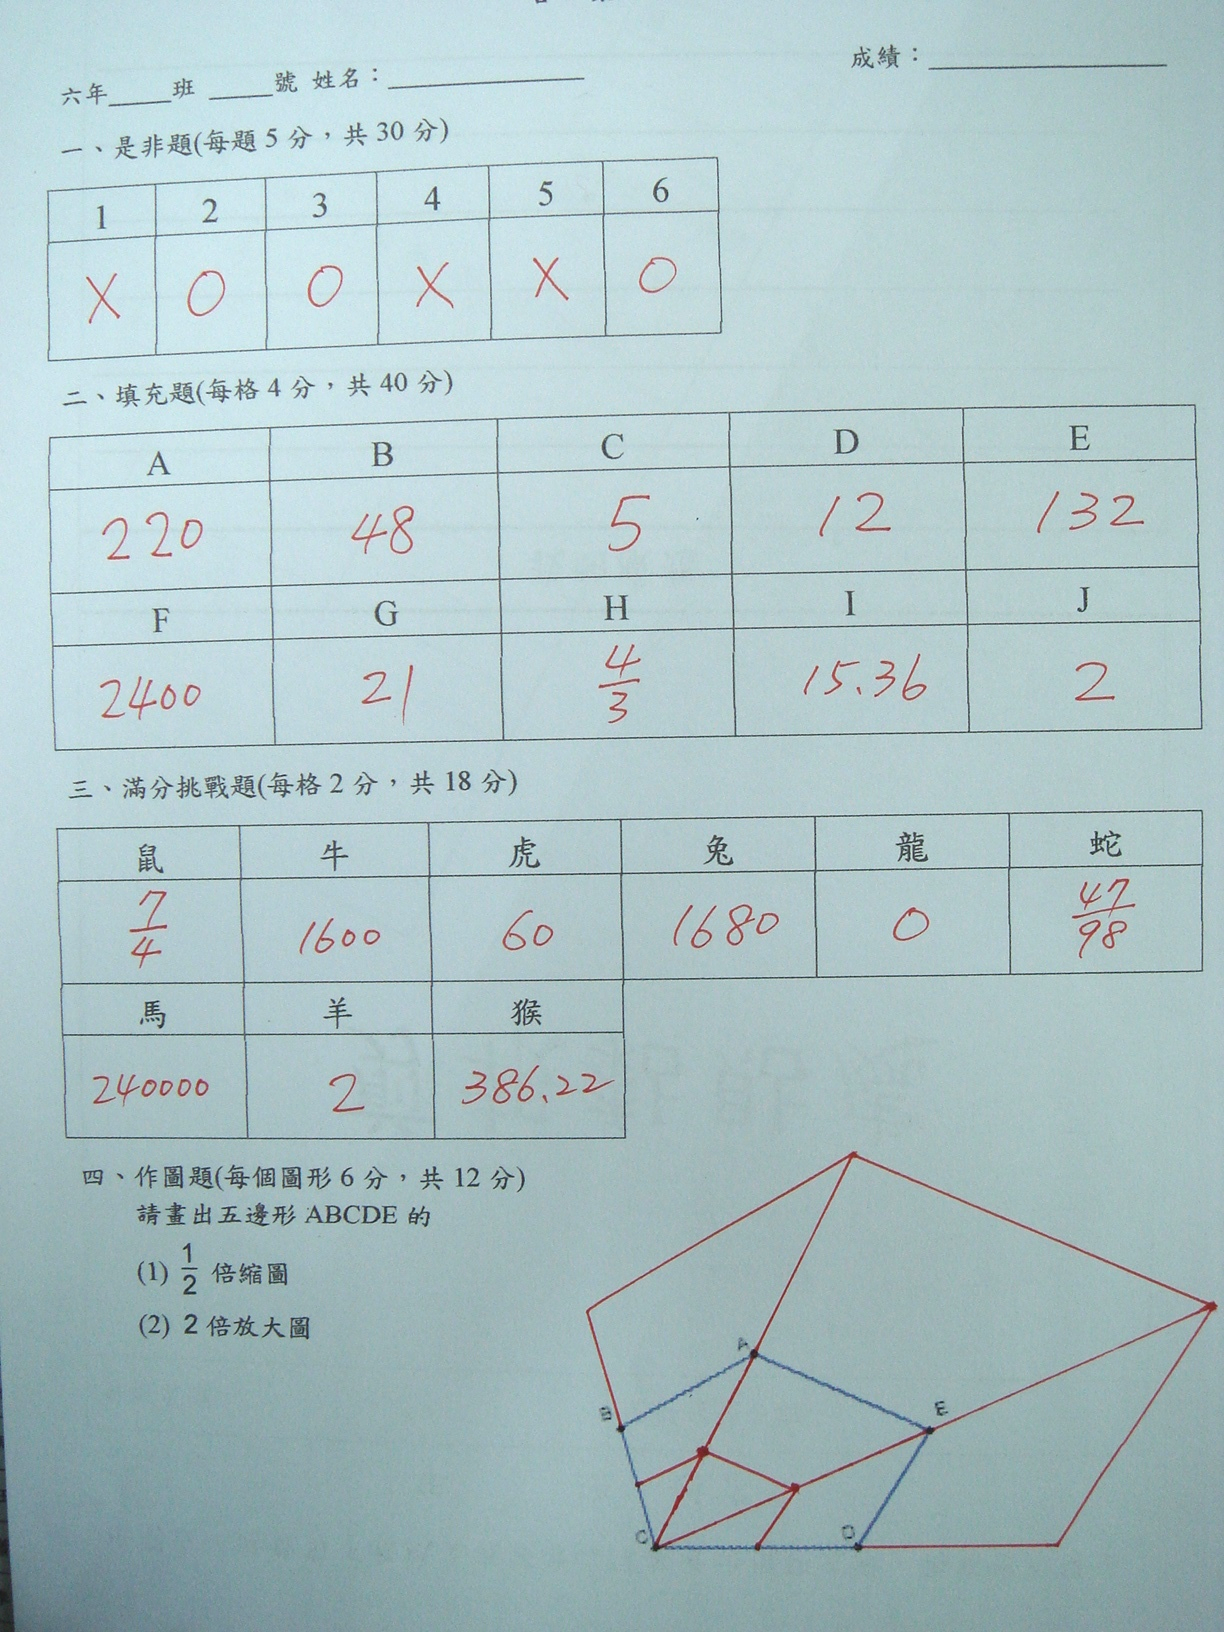 成績：
六年 班 號 姓名：
一、是非題(每題 5 分，共 30 分)
1 2 3 4 5 6
X O O X X O
二、填充題(每格 4 分，共 40 分)
A B C D E
220 48 5 12 132
F G H I J
2400 21 4/3 15.36 2
三、滿分挑戰題(每格 2 分，共 18 分)
鼠 牛 虎 兔 龍 蛇
7/4 1600 60 1680 0 47/98
馬 羊 猴
240000 2 386.22
四、作圖題(每個圖形 6 分，共 12 分)
請畫出五邊形 ABCDE 的
(1) 1/2 倍縮圖
(2) 2 倍放大圖
A
B
E
C
D